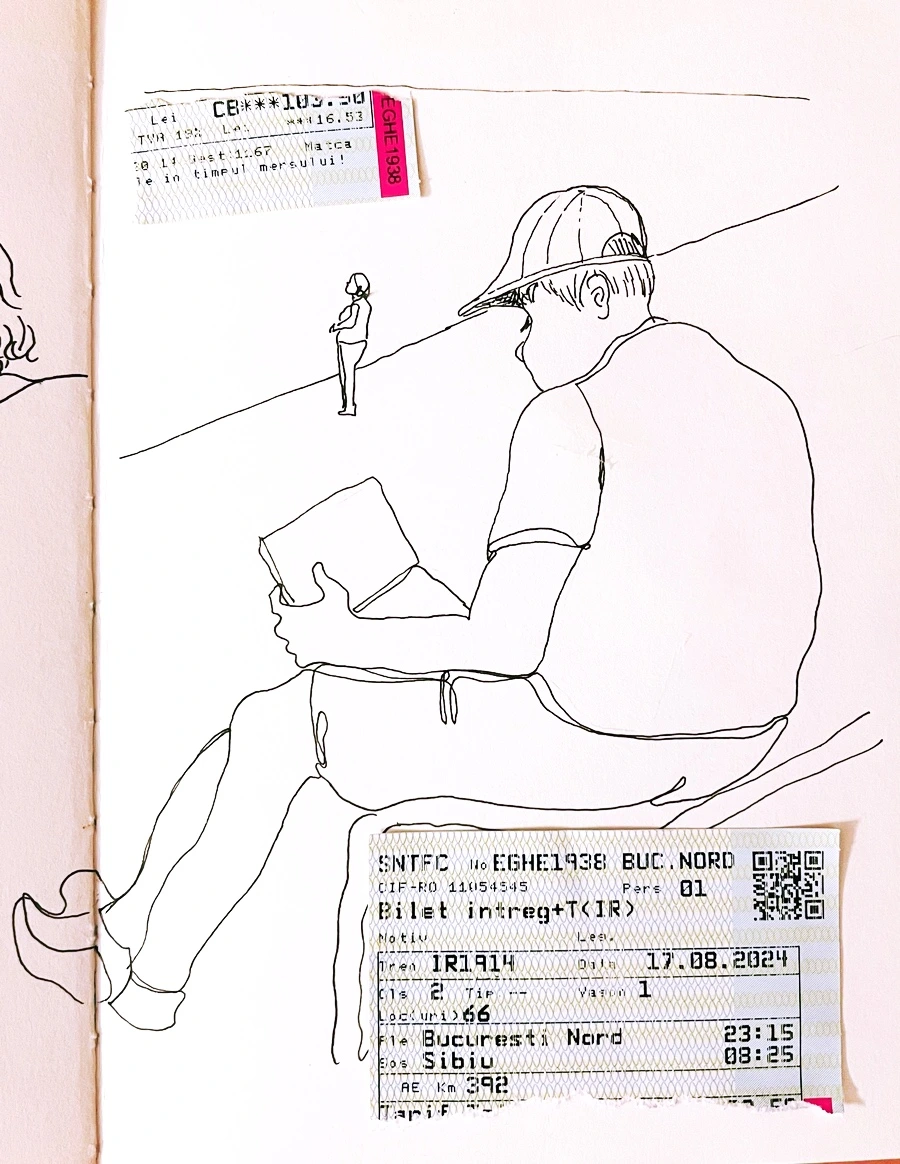 Lei CB***103.50
TVA 19% Lei ***16.53
Gest:1167 Matca
ie in timpul mersului!
EGHE1938
SNTFC No EGHE1938 BUC.NORD
CIF-RO 11054545 Pers 01
Bilet intreg+T(IR)
Motiv Leg.
Tren IR1914 Data 17.08.2024
Cls 2 Tip -- Vagon 1
Loc(uri) 66
Ple Bucuresti Nord 23:15
Sos Sibiu 08:25
AE Km 392
Tarif